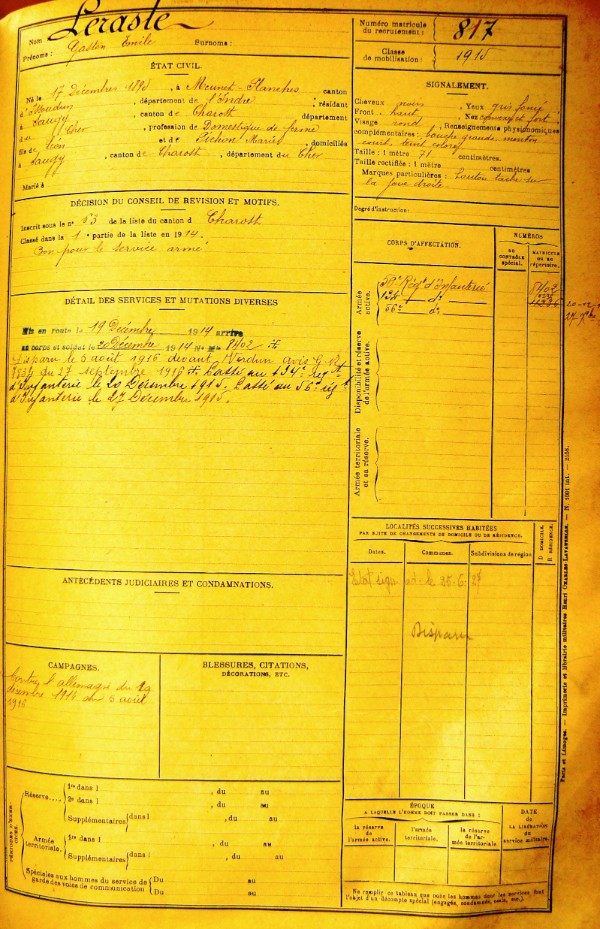 Nom Leraste
Prénoms: Gaston Emile Surnoms:
ÉTAT CIVIL.
Né le 17 décembre 1895, à Meunet-Planches canton
d'Issoudun, département de l'Indre, résidant
à Saugy, canton de Charost département
du Cher, profession de Domestique de ferme
fils de Léon et de Pichon Marie, domiciliés
à Saugy, canton de Charost, département du Cher
Marié à
DÉCISION DU CONSEIL DE REVISION ET MOTIFS.
Inscrit sous le n° 13 de la liste du canton d Charost
Classé dans la 1e partie de la liste en 1914.
Bon pour le service armé
DÉTAIL DES SERVICES ET MUTATIONS DIVERSES
Mis en route le 19 Décembre 1914 arrivé
au corps et soldat le 20 Décembre 1914 N° Mle 8402
Disparu le 5 août 1916 devant Verdun avis
du 27 septembre 1916 Passé au 134e régt
d'Infanterie le 20 Décembre 1915. Passé au 56e régt
d'Infanterie le 27 Décembre 1915.
ANTÉCÉDENTS JUDICIAIRES ET CONDAMNATIONS.
CAMPAGNES.
Contre l'allemagne du
décembre au 5 août
1916
BLESSURES, CITATIONS,
DÉCORATIONS, ETC.
PÉRIODES D'EXERCICES
Réserve.... 1re dans l , du au
2e dans l , du au
Supplémentaires dans l , du au
Armée territoriale. 1re dans l , du au
Supplémentaires dans l , du au
Spéciales aux hommes du service de garde des voies de communication Du au
Du au
Numéro matricule du recrutement: 817
Classe de mobilisation: 1915
SIGNALEMENT.
Cheveux noirs, Yeux gris foncé
Front haut, Nez fort
Visage rond, Renseignements physionomiques
complémentaires: bouche grande, menton
court, teint coloré
Taille: 1 mètre 71 centimètres.
Taille rectifiée: 1 mètre centimètres
Marques particulières: sur
la joue droite
Degré d'instruction:
CORPS D'AFFECTATION.
NUMÉROS
AU CONTRÔLE spécial.
MATRICULE OU AU répertoire.
Armée active.
Régt d'Infanterie 8402
134e do
56e do
Disponibilité et réserve de l'armée active.
Armée territoriale et sa réserve.
LOCALITÉS SUCCESSIVES HABITÉES
PAR SUITE DE CHANGEMENTS DE DOMICILE OU DE RÉSIDENCE.
Dates.
Communes.
Subdivisions de région
D. DOMICILE.
R. RÉSIDENCE.
Disparu
ÉPOQUE
A LAQUELLE L'HOMME DOIT PASSER DANS:
la réserve de l'armée active.
l'armée territoriale.
la réserve de l'armée territoriale.
DATE
de LA LIBÉRATION du service militaire.
Ne remplir ce tableau que pour les hommes dont les services font
l'objet d'un décompte spécial (engagés, condamnés, omis, etc.)
Paris et Limoges. — Imprimerie et librairie militaires Henri CHARLES-LAVAUZELLE.